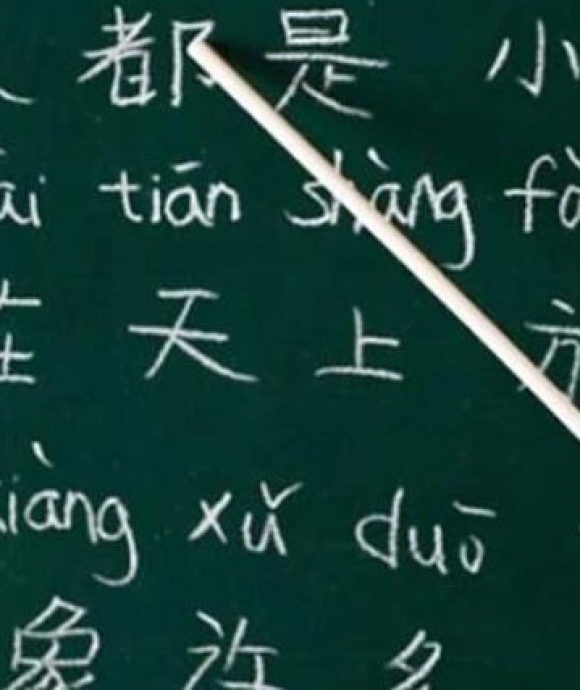 都是 小
ài tiān shàng fà
在 天 上 方
xiàng xǔ duō
象 许 多